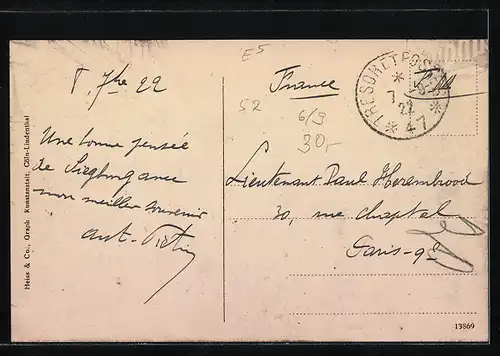 E5
7bre 22
France
TRESOR ET POSTES
7
22
* 47 *
52
6/9
30,-
Une bonne pensée
de Siegburg avec
mon meilleur souvenir
Lieutenant Paul Herembrood
30, rue Chaptal
Paris-9e
Heiss & Co., Graph. Kunstanstalt, Cöln-Lindenthal
13869